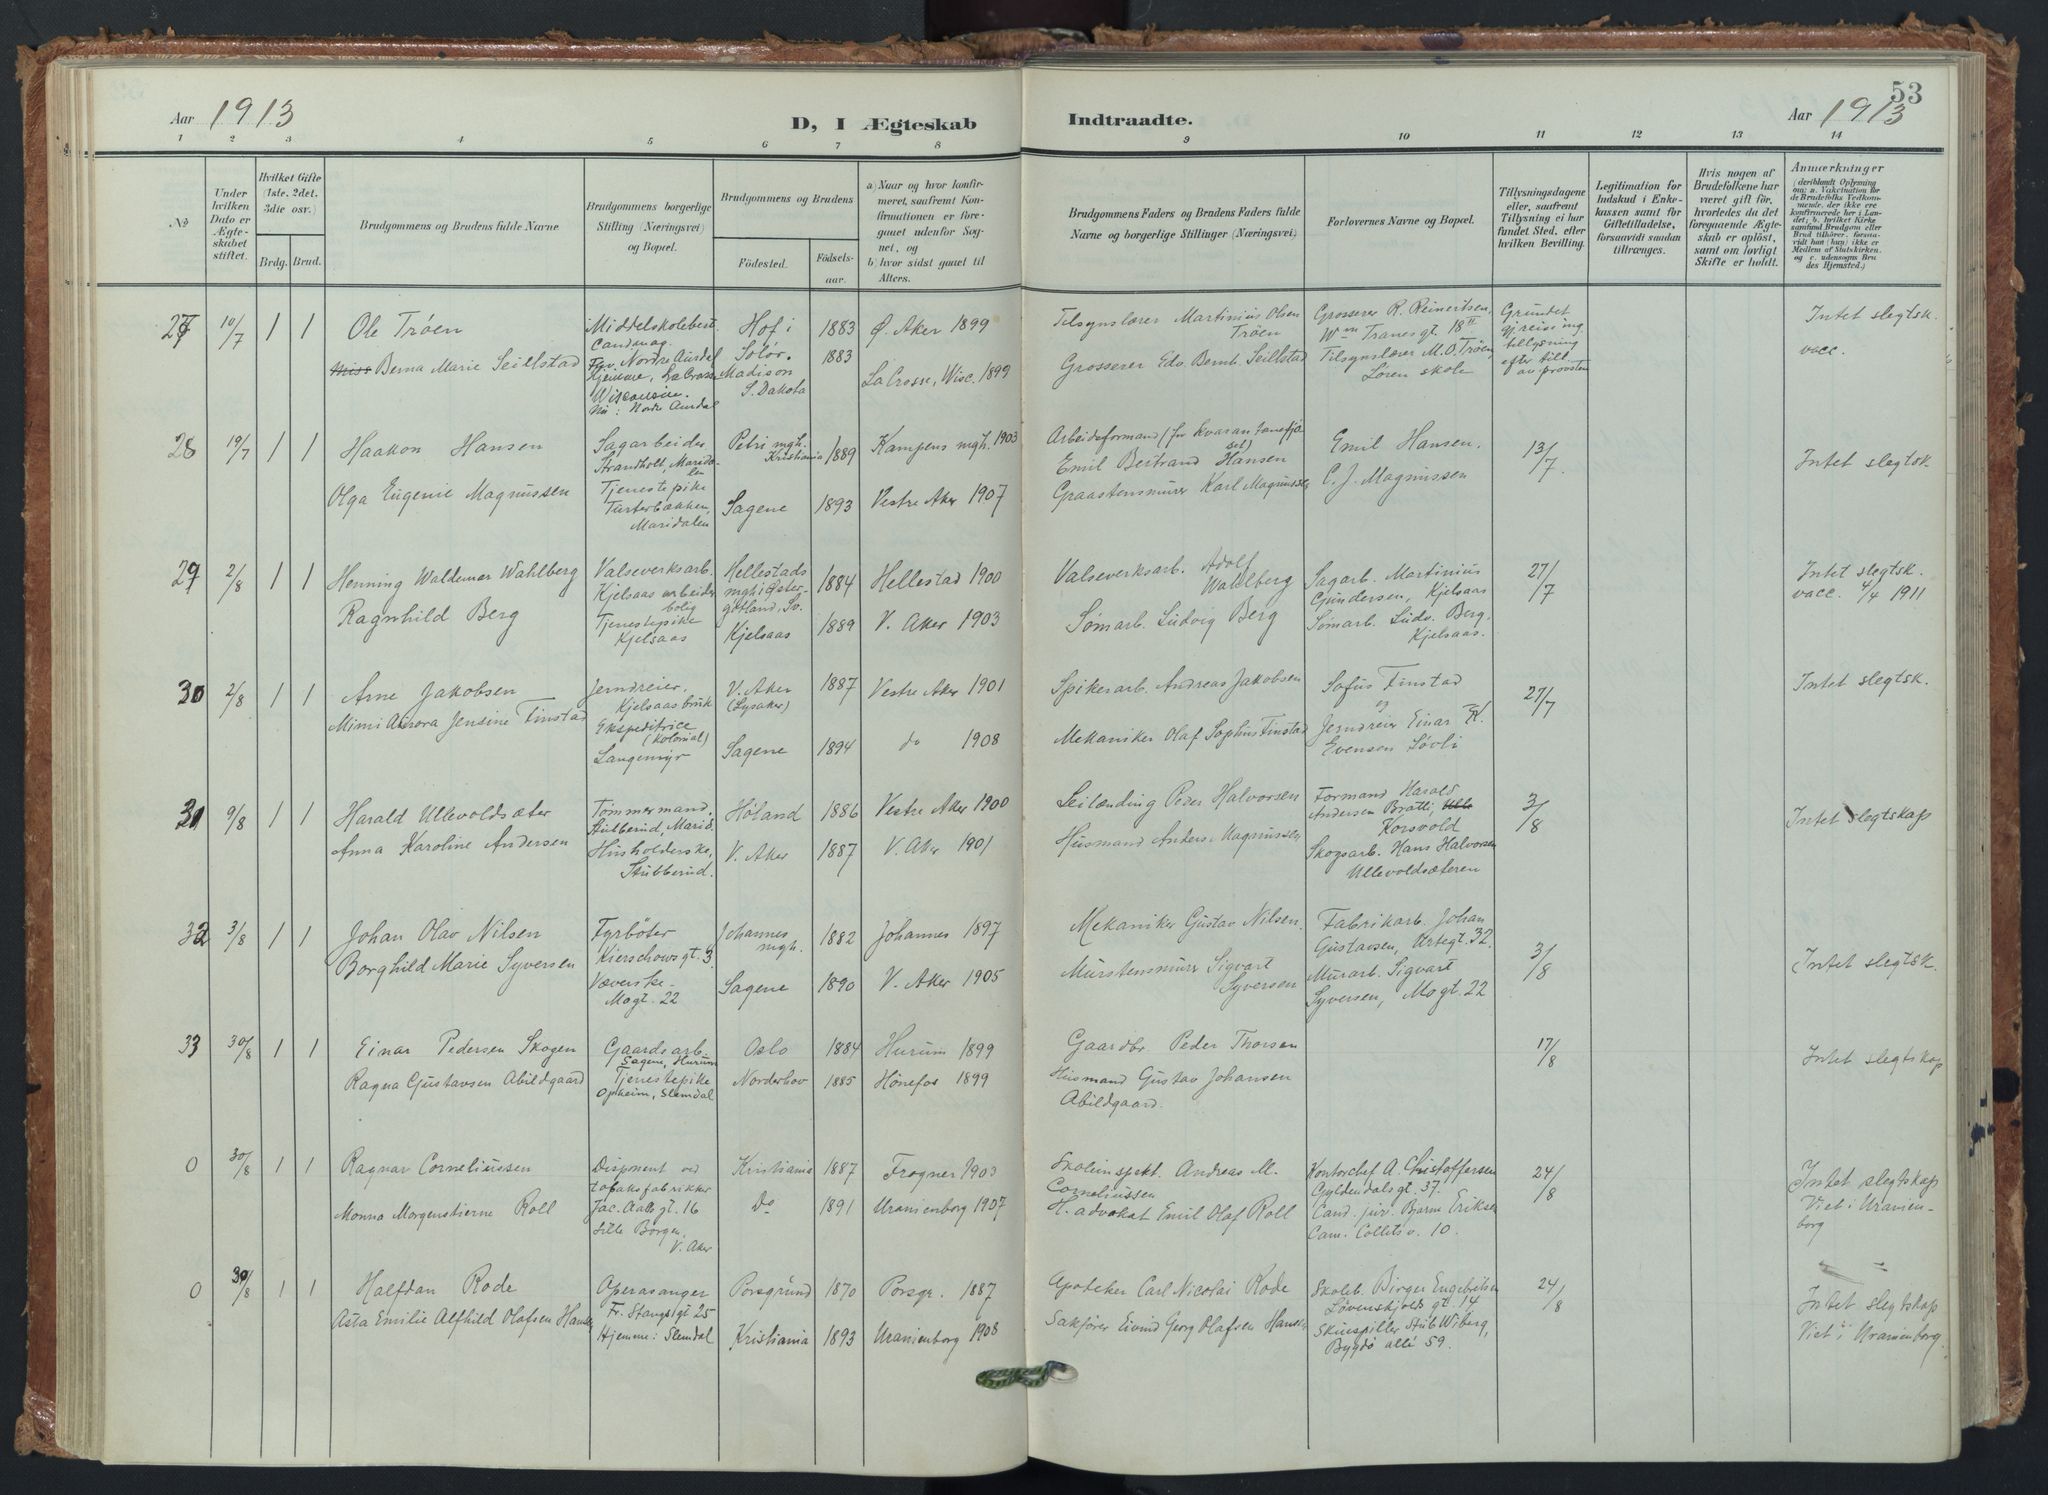 Aar 1913
D, I Ægteskab
Indtraadte.
53
Aar 1913
1 2 3 4 5 6 7 8 9 10 11 12 13 14
No
Under hvilken Dato er Ægteskabet stiftet.
Hvilket Gifte (1ste, 2det, 3die osv.)
Brdg. Brud.
Brudgommens og Brudens fulde Navne
Brudgommens borgerlige Stilling (Næringsvei) og Bopæl.
Brudgommens og Brudens
Födested.
Födselsaar.
a) Naar og hvor konfirmeret, saafremt Konfirmationen er foregaaet udenfor Sognet, og
b) hvor sidst gaaet til Alters.
Brudgommens Faders og Brudens Faders fulde Navne og borgerlige Stillinger (Næringsvei.)
Forlovernes Navne og Bopæl.
Tillysningsdagene eller, saafremt Tillysning ei har fundet Sted, efter hvilken Bevilling.
Legitimation for Indskud i Enkekassen samt for Giftetilladelse, forsaavidt saadan tiltrænges.
Hvis nogen af Brudefolkene har været gift før, hvorledes da det foregaaende Ægteskab er oplöst, samt om lovligt Skifte er holdt.
Anmærkninger
(deriblandt Oplysning om: a. Vakcination for de Brudefolks Vedkommende, der ikke ere konfirmerede her i Landet; b. hvilket Kirkesamfund Brudgom eller Brud tilhörer, forsaavidt han (hun) ikke er Medlem af Statskirken, og c. udensogns Brudes Hjemsted.)
27 10/7 1 1
Ole Tröen
Miss Berna Marie Seillstad
Middelskolebest.
Cand mag.
Nordre Aurdal
Hjemme, La Crosse
Wisconsin.
Nu: Nordre Aurdal
Hof i
Solör.
Madison
S. Dakota
1883
1883
Ø. Aker 1899
La Crosse, Wisc. 1899
Tilsynslærer Martinius Olsen
Tröen
Grosserer Edv. Bernt Seillstad
Grosserer R. Reinertsen,
Wm Tranes gt. 18 II
Tilsynslærer M.O. Tröen
Løren skole
Grundet
reise ing.
tillysning
efter till.
av provsten
Intet slegtsk.
vacc.
28 19/7 1 1
Haakon Hansen
Olga Eugenie Magnussen
Sagarbeider
Strandholt, Maridalen
Tjenestepike
Turterbakken,
Maridalen
Petri mgh.
Kristiania
Sagene
1889
1893
Kampens mgh. 1903
Vestre Aker 1907
Arbeidsformand (for kvarantanefjøset)
Emil Bertrand Hansen
Graastensmurer Karl Magnussen
Emil Hansen.
C. J. Magnussen
13/7
Intet slegtsk.
29 2/8 1 1
Henning Waldemar Wahlberg
Ragnhild Berg
Valseverksarb.
Kjelsaas arbeiderbolig
Tjenestepike
Kjelsaas
Hellestads
mgh i Östergötland, Sv.
Kjelsaas
1884
1889
Hellestad 1900
V. Aker 1903
Valseverksarb. Adolf
Wahlberg
Sömarb. Ludvig Berg
Sagarb. Martinius
Gundersen, Kjelsaas
Sömarb. Ludv. Berg,
Kjelsaas.
27/7
Intet slegtsk.
vacc. 4/4 1911
30 2/8 1 1
Arne Jakobsen
Mimi Aurora Jensine Finstad
Jerndreier,
Kjelsaas bruk
Ekspeditrice
(kolonial)
Langemyr
V. Aker
(Lysaker)
Sagene
1887
1894
Vestre Aker 1901
do 1908
Spikerarb. Andreas Jakobsen
Mekaniker Olaf Sophus Finstad
Sofus Finstad
og
Jerndreier Einar
Evensen Lövli
27/7
Intet slegtsk.
31 9/8 1 1
Harald Ullevoldsæter
Anna Karoline Andersen
Tömmermand,
Stubberud, Marid.
Husholderske,
Stubberud.
Höland
V. Aker
1886
1887
Vestre Aker 1900
V. Aker 1901
Leilænding Peder Halvorsen
Husmand Anders Magnussen
Formand Harald
Andersen Bratli,
Korsvold
Skogsarb. Hans Halvorsen
Ullevoldsæteren
3/8
Intet slegtskap
32 3/8 1 1
Johan Olav Nilsen
Borghild Marie Syversen
Fyrböter
Kierschowsgt. 3
Væverske
Mogt. 22
Johannes
mgh.
Sagene
1882
1890
Johannes 1897
V. Aker 1905
Mekaniker Gustav Nilsen.
Murstensmurer Sigvart
Syversen
Fabrikarb. Johan
Gustavsen, Artegt. 32.
Murarb. Sigvart
Syversen, Mogt. 22
3/8
Intet slegtsk.
33 30/8 1 1
Einar Pedersen Skogen
Ragna Gustavsen Abildgaard
Gaardsarb.
Sagene, Hurum
Tjenestepike
Opheim, Slemdal
Oslo
Norderhov
1884
1885
Hurum 1899
Hönefos 1899
Gaardbr. Peder Thorsen
Husmand Gustav Johansen
Abildgaard.
17/8
Intet slegtskap
0 30/8 1 1
Ragnar Corneliussen
Monna Morgenstierne Roll
Disponent ved
tobaksfabrikker
Jac. Aalls gt. 16
Lille Borgen,
V. Aker
Kristiania
Do
1887
1891
Frogner 1903
Uranienborg 1907
Skoleinspekt. Andreas M.
Corneliussen
H. advokat Emil Olaf Roll
Kontorchef A. Christoffersen
Gyldendalsgt. 37.
Cand. jur. Bjarne Eriksen
Cam. Colletts v. 10.
24/8
Intet slegtskap
Viet i Uranienborg
0 30/8 1 1
Halfdan Rode
Asta Emilie Alfhild Olafsen Hansen
Operasanger
Fr. Stangs gt. 25
Hjemme: Slemdal
Porsgrund
Kristiania
1870
1893
Porsgr. 1887
Uranienborg 1908
Apoteker Carl Nicolai Rode
Sakförer Eivind Georg Olafsen Hansen
Skoleb. Birger Engebretsen
Lövenskjolds gt. 14
Skuespiller Stub Wiberg,
Bygdö allé 59.
24/8
Intet slegtskap
Viet i Uranienborg.